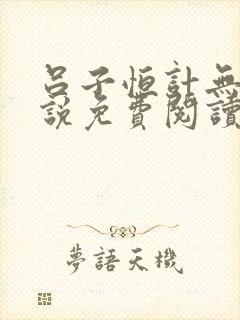 呂子恒計無
說免費閱讀
夢語天機